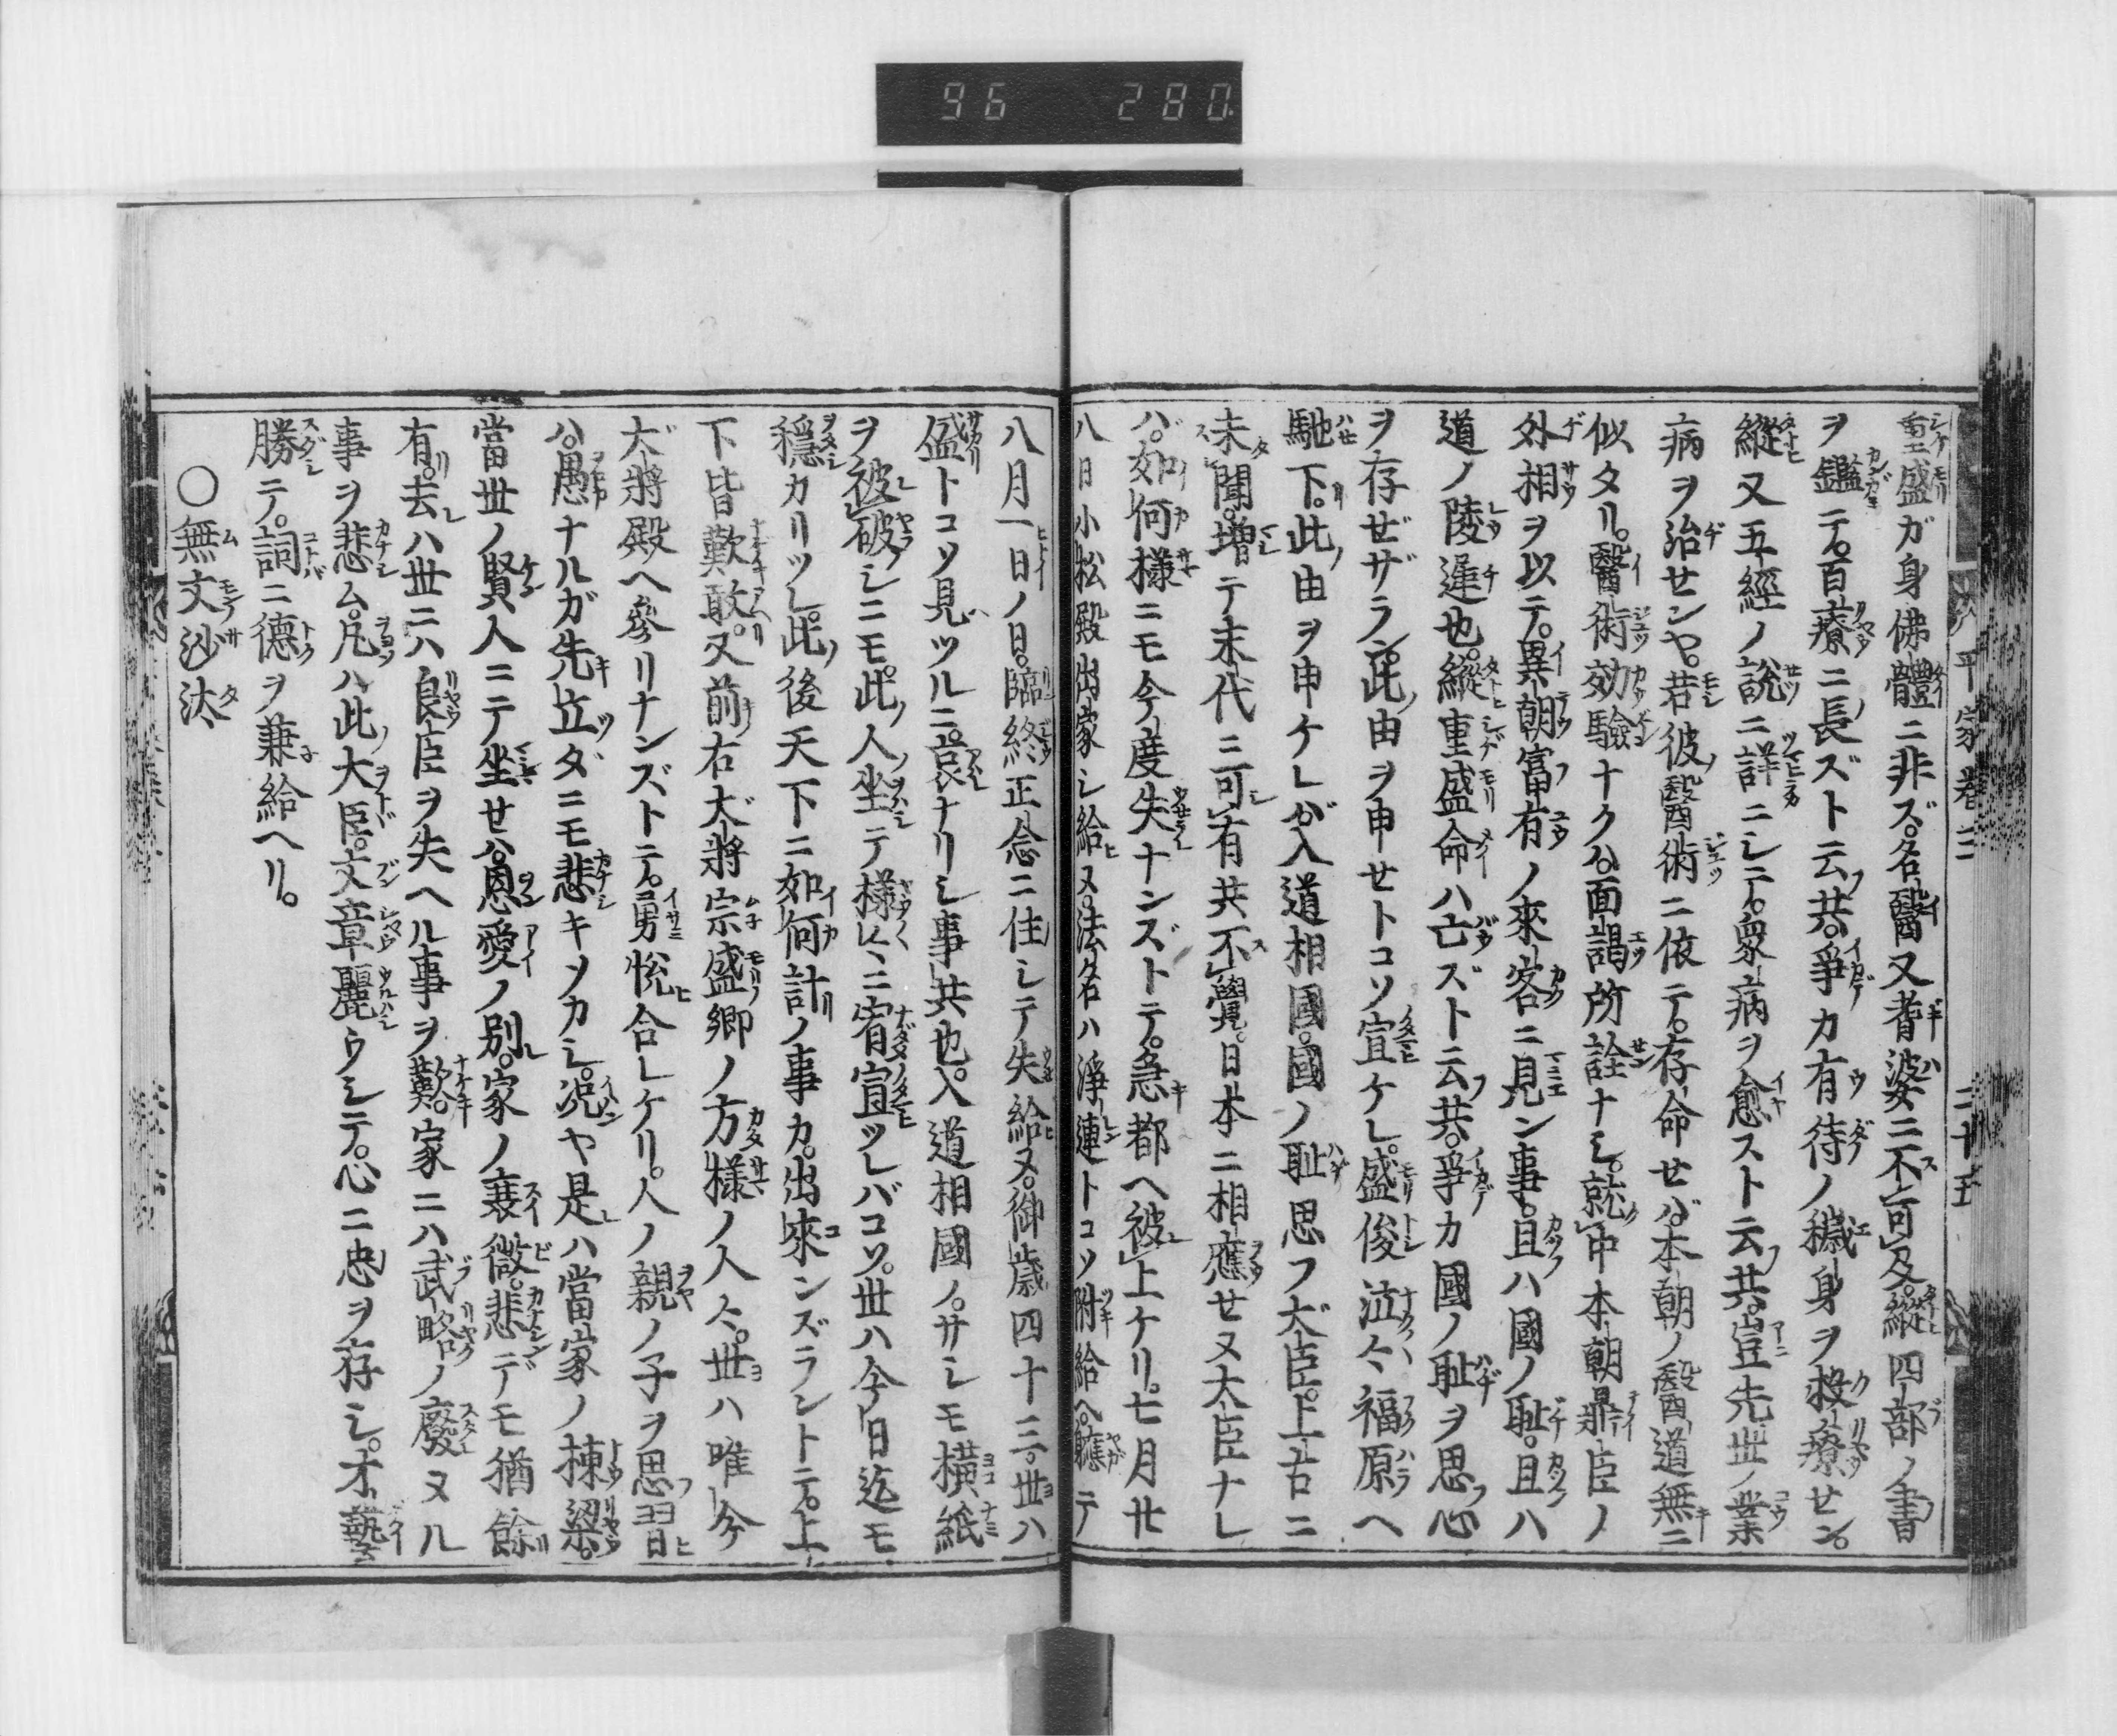 96 280
平家巻三 二十五
重盛ガ身佛體ニ非ズ。名醫又耆婆ニ不可及。縦四部ノ書
ヲ鑑テ。百療ニ長ズト云共。爭カ有待ノ穢身ヲ救療セン。
縦又五經ノ説ニ詳ニシテ。衆病ヲ愈スト云共。豈先世ノ業
病ヲ治センヤ。若彼ノ醫術ニ依テ。存命セバ。本朝ノ醫道無ニ
似タリ。醫術効驗ナクハ。面謁所詮ナシ。就中本朝鼎臣ノ
外相ヲ以テ。異朝富有ノ來客ニ見ン事。且ハ國ノ耻。且ハ
道ノ陵遅也。縦重盛命ハ亡ズト云共。爭カ國ノ耻ヲ思フ心
ヲ存ゼザラン。此由ヲ申セトコソ宣ケレ。盛俊泣々福原ヘ
馳下。此由ヲ申ケレバ。入道相國。國ノ耻思フ大臣。上古ニ
未聞。増テ末代ニ可有共不覺。日本ニ相應セヌ大臣ナレ
ハ。如何様ニモ今度失ナンズトテ。急都ヘ被上ケリ。七月廿
八日小松殿出家シ給ヌ。法名ハ淨蓮トコソ附給ヘ。軈テ
八月一日ノ日。臨終正念ニ住シテ失給ヌ。御歳四十三。世ハ
盛トコソ見ツルニ。哀ナリシ事共也。入道相國ノ。サシモ横紙
ヲ被破シニモ。此人坐テ様々ニ宥宣ツレバコソ。世ハ今日迄モ
穩カリツレ。此後天下ニ如何計ノ事カ。出來ンズラントテ。上
下皆歎敢。又前右大將宗盛卿ノ方様ノ人々。世ハ唯今
大將殿ヘ參リナンズトテ。勇悦合レケリ。人ノ親ノ子ヲ思フ習ヒ
ハ。愚ナルガ先立ダニモ悲キゾカシ。况ヤ是ハ當家ノ棟梁。
當世ノ賢人ニテ坐セバ。恩愛ノ別。家ノ衰微。悲デモ猶餘
有。去ハ世ニハ良臣ヲ失ヘル事ヲ歎。家ニハ武略ノ廢ヌル
事ヲ悲ム。凡ハ此大臣。文章麗ウシテ。心ニ忠ヲ存シ。才藝
勝テ。詞ニ德ヲ兼給ヘリ。
〇無文沙汰